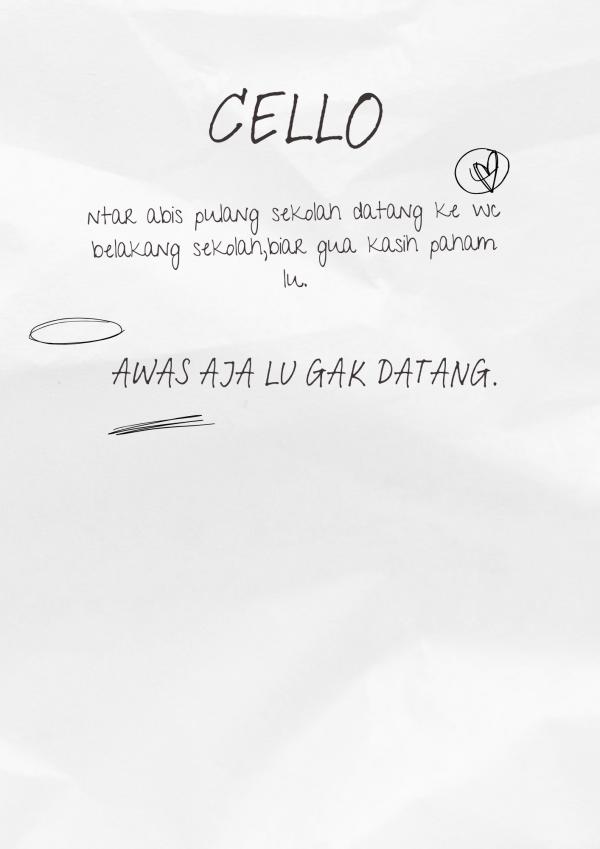 CELLO
Ntar abis pulang sekolah datang ke wc
belakang sekolah,biar gua kasih paham
lu.
AWAS AJA LU GAK DATANG.